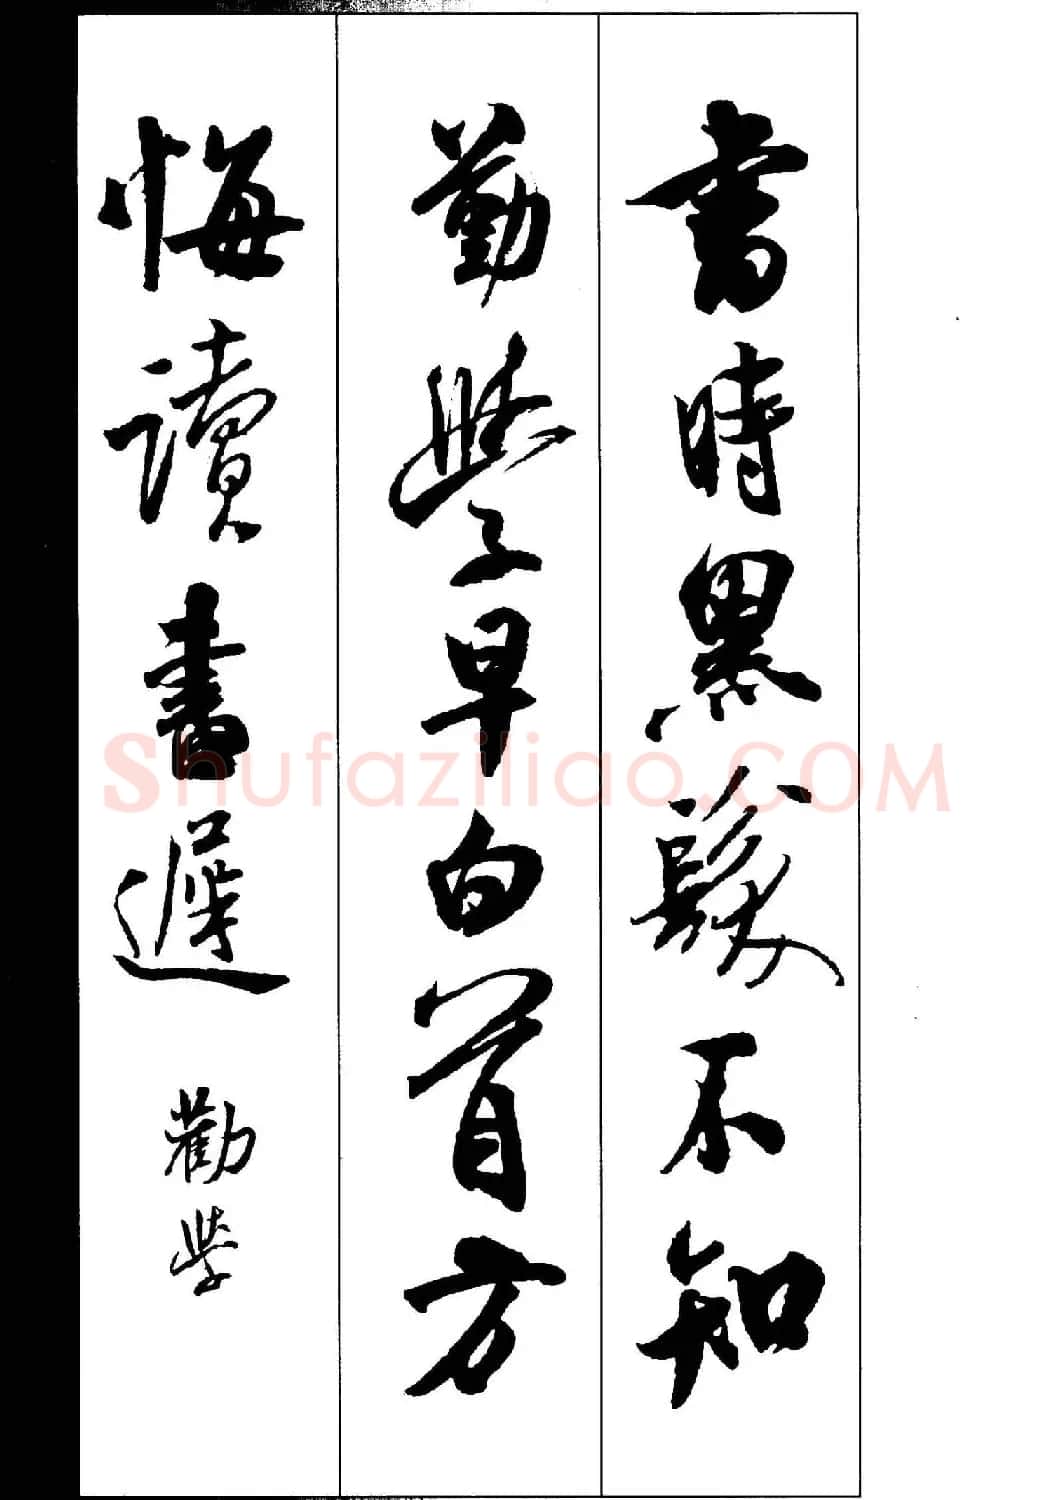 書時黑髮不知
勤學早白首方
悔讀書遲 勸學
Shufaziliao.COM